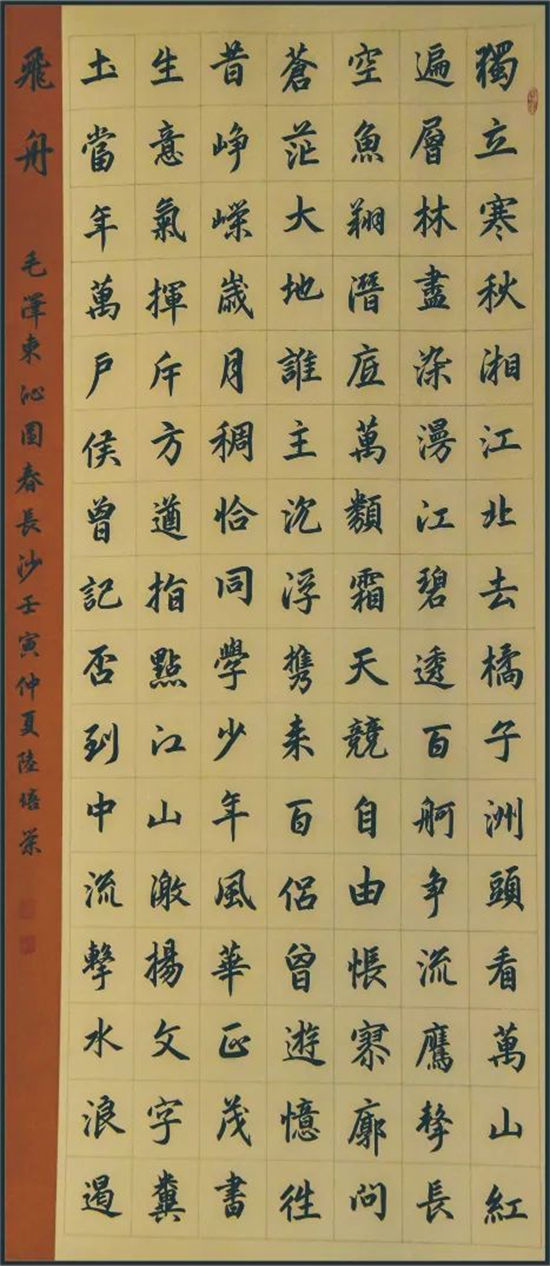 獨立寒秋湘江北去橘子洲頭看萬山紅
遍層林盡染漫江碧透百舸争流鷹擊長
空魚翔潛底萬類霜天競自由悵寥廓問
蒼茫大地誰主沉浮携来百侣曾遊憶往
昔崢嶸歲月稠恰同學少年風華正茂書
生意氣揮斥方遒指點江山激揚文字糞
土當年萬戶侯曾記否到中流擊水浪遏
飛舟 毛澤東沁園春長沙壬寅仲夏陸培榮